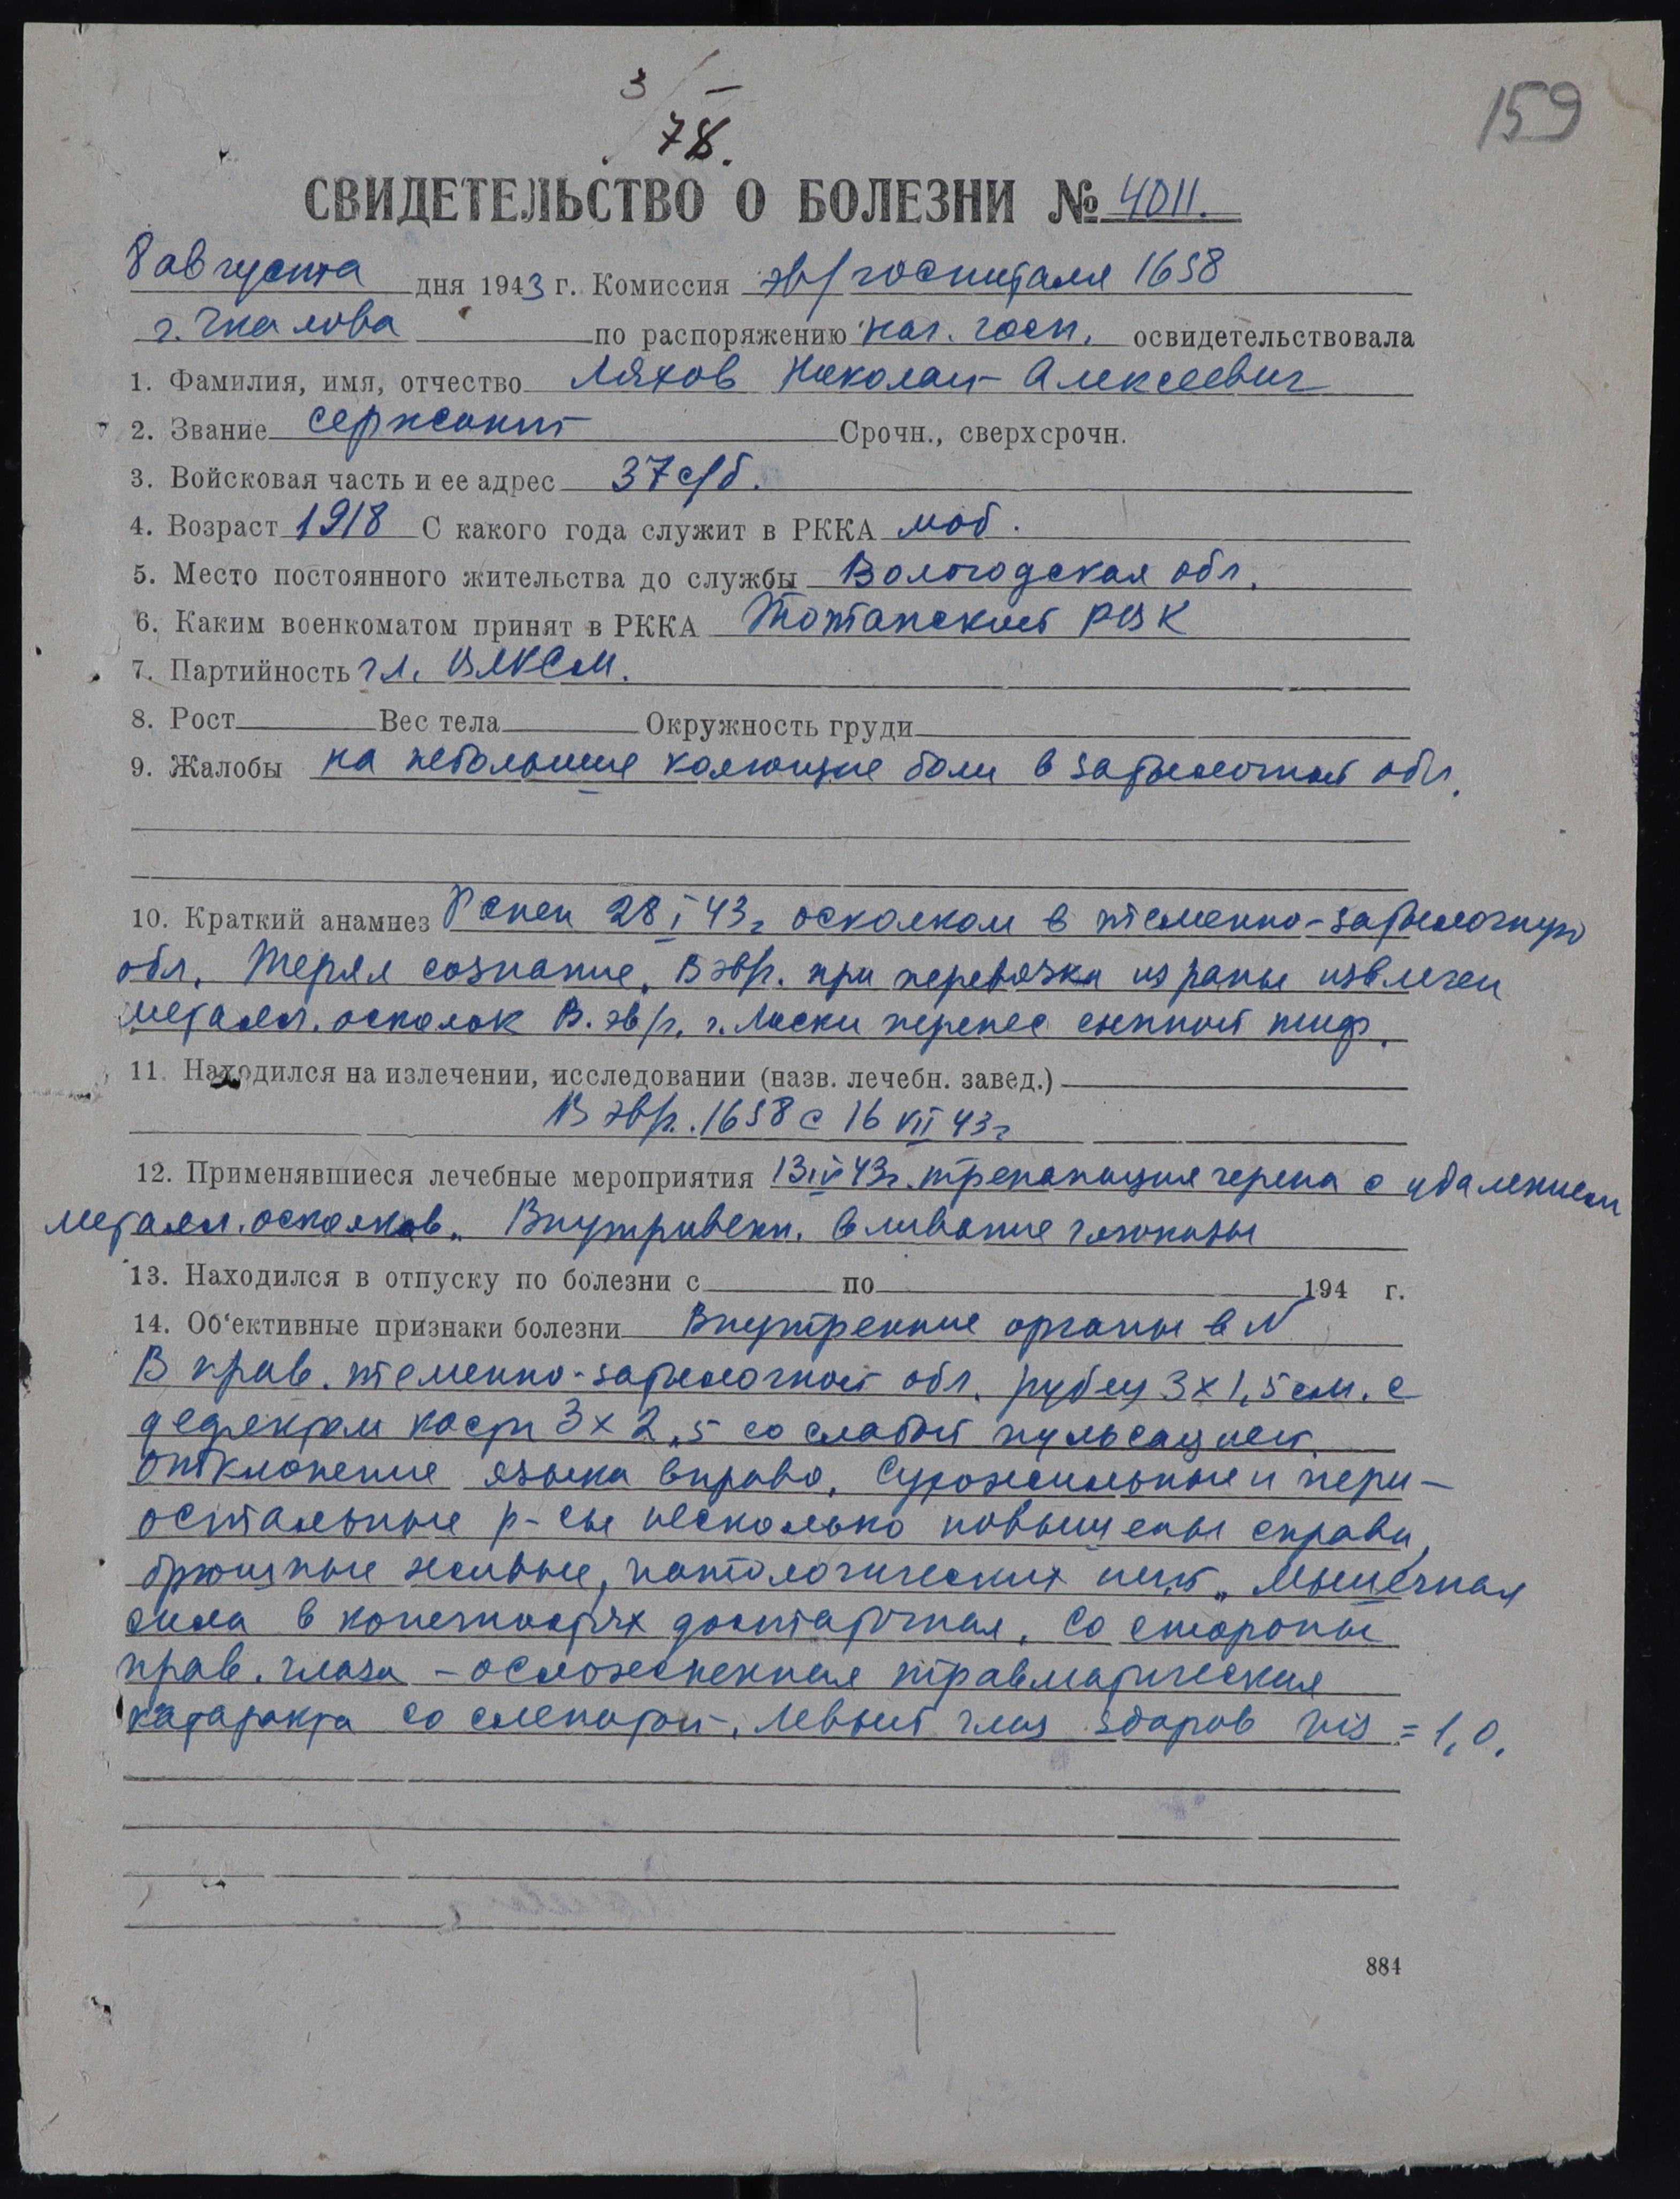 159
3/–
78.
СВИДЕТЕЛЬСТВО О БОЛЕЗНИ № 4011.
8 августа дня 1943 г. Комиссия эв/госпиталя 1658
г. Чкалова по распоряжению нач. госп. освидетельствовала
1. Фамилия, имя, отчество Ляхов Николай Алексеевич
2. Звание сержант Срочн., сверхсрочн.
3. Войсковая часть и ее адрес 37 с/б.
4. Возраст 1918 С какого года служит в РККА моб.
5. Место постоянного жительства до службы Вологодская обл.
6. Каким военкоматом принят в РККА РВК
7. Партийность чл. ВЛКСМ.
8. Рост Вес тела Окружность груди
9. Жалобы на небольшие колющие боли в затылочной обл.
10. Краткий анамнез Ранен 28 I 43 г осколком в теменно-затылочную
обл. Терял сознание. В эв/г. при перевязки из раны извлечен
металл. осколок В. эв/г. г. Лиски перенес сыпной тиф.
11. Находился на излечении, исследовании (назв. лечебн. завед.)
В эв/г. 1658 с 16 VII 43 г
12. Применявшиеся лечебные мероприятия 13 IV 43 г. трепанация черепа с удалением
металл. осколков. Внутривенн. вливание глюкозы
13. Находился в отпуску по болезни с по 194 г.
14. Об'ективные признаки болезни Внутренние органы в N
В прав. теменно-затылочной обл. рубец 3 х 1,5 см. с
дефектом кости 3 х 2,5 со слабой пульсацией.
Отклонение языка вправо. Сухожильные и пери-
остальные р-сы несколько повышены справа,
брюшные живые, патологических нет. Мышечная
сила в конечностях достаточная. Со стороны
прав. глаза – осложненная травматическая
катаракта со слепотой. Левый глаз здоров vis = 1,0.
884